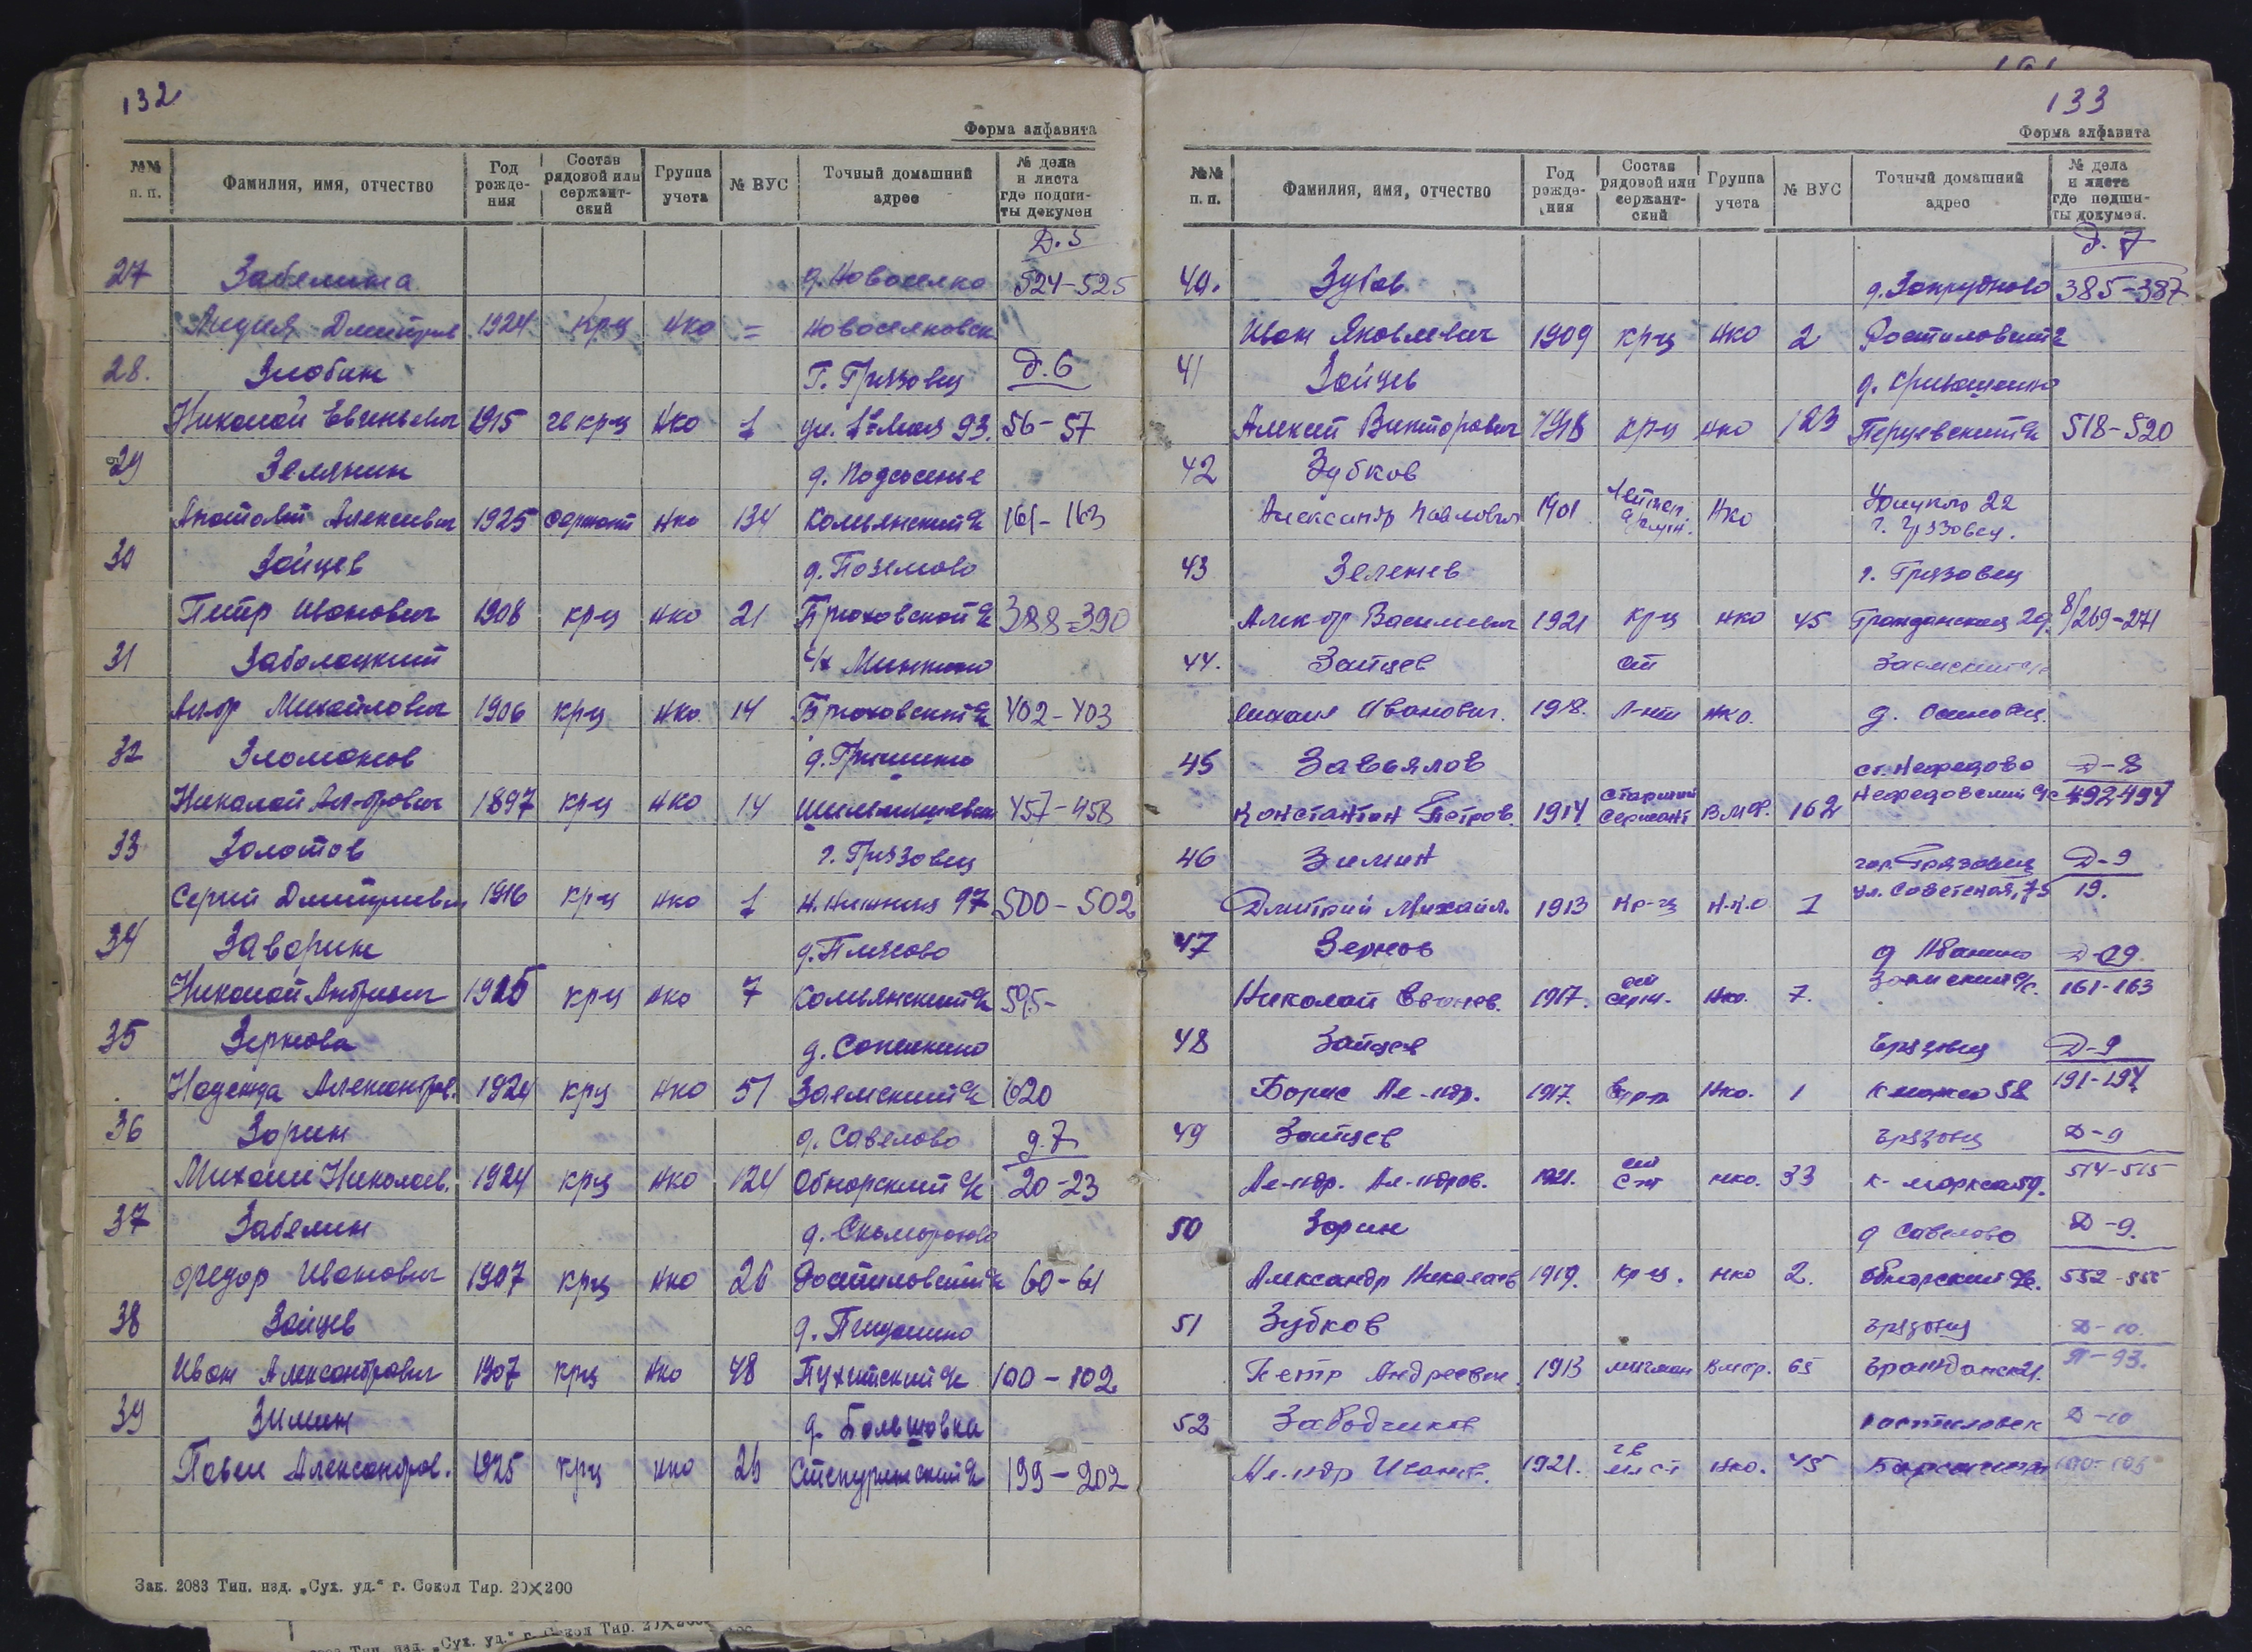 132
Форма алфавита
№№ п. п. Фамилия, имя, отчество Год рождения Состав рядовой или сержантский Группа учета № ВУС Точный домашний адрес № дела и листа где подшиты докумен
Д. 5
27 Забелина д. Новоселка 524-525
Лидия Дмитров 1924 крц НКО = Новоселковск
28. Злобин Г. Грязовец Д. 6
Николай Евгеньевич 1915 гв крц НКО 1 ул. 1е Мая 93. 56-57
29 Зелянин д. Подсосенье
Анатолий Алексеевич 1925 сержант НКО 134 Комьянский с/с 161-163
30 Зайцев д. Поземово
Петр Иванович 1908 крц НКО 21 Брюховской с/с 388-390
31 Заболоцкий с/х Минкино
Ал-др Михайлович 1906 крц НКО. 14 Брюховский с/с 402-403
32 Зломанов д. Гришино
Николай Ал-дрович 1897 крц НКО 14 457-458
33 Золотов г. Грязовец
Сергей Дмитриевич 1916 крц НКО 1 97 500-502
34 Заворин
Николай Андреевич 1925 крц НКО 7 Комьянский с/с 595-
35 Зернова
Надежда Александров. 1924 крц НКО 51 Заемский с/с 620
36 Зорин д. Савелово д. 7
Михаил Николаев. 1924 крц НКО 124 Обнорский с/с 20-23
37 Забелин д. Скоморохово
Федор Иванович 1907 крц НКО 26 Ростиловский с/с 60-61
38 Зайцев
Иван Александрович 1907 крц НКО 48 Пухитский с/с 100-102
39 Зимин
Павел Александров. 1925 крц НКО 26 Степуринский с/с 199-202
Зак. 2083 Тип. изд. „Сух. уд.“ г. Сокол Тир. 20×200
133
Форма алфавита
№№ п. п. Фамилия, имя, отчество Год рождения Состав рядовой или сержантский Группа учета № ВУС Точный домашний адрес № дела и листа где подшиты докумен.
Д. 7
40. Зубов д. Запрудново 385-387
Иван Яковлевич 1909 крц НКО 2 Ростиловский с/с
41 Зайцев
Алексей Викторович 1918 крц НКО 123 Перцевский с/с 518-520
42 Зубков
Александр Павлович 1901 НКО 22
г. Грязовец.
43 Зеленев г. Грязовец
Алек-др Васильевич 1921 крц НКО 45 Гражданская 29. 8/269-271
44. Зайцев ст Заемский с/с
Михаил Иванович. 1918. Л-нт НКО.
45 Завьялов ст. Нефедово Д-8
Константин Петров. 1914 старший сержант В.М.Ф. 162 Нефедовский с/с 492-494
46 Зимин гор. Грязовец Д-9
Дмитрий Михайл. 1913 кр-ц Н.К.О 1 ул. Советская, 75 19.
47 Зернов Д-09.
Николай 1917. ст серж. НКО. 7. Заемский с/с. 161-163
48 Зайцев Грязовец Д-9
Борис Ал-ндр. 1917. НКО. 1 К маркса 58 191-194
49 Зайцев Грязовец Д-9
Ал-ндр. Ал-ндров. 1921. НКО. 33 К-маркса 59. 514-515
50 Зорин д Савелово Д-9.
Александр Николаев 1919. кр-ц. НКО 2. Обнорский с/с. 552-555
51 Зубков Грязовец Д-10.
Петр Андреевич. 1913 мичман В.м.ф. 65 Гражданск 21. Л-93.
52 Заводчиков Ростиловск Д-10
Ал-ндр Иванов. 1921. НКО. 45